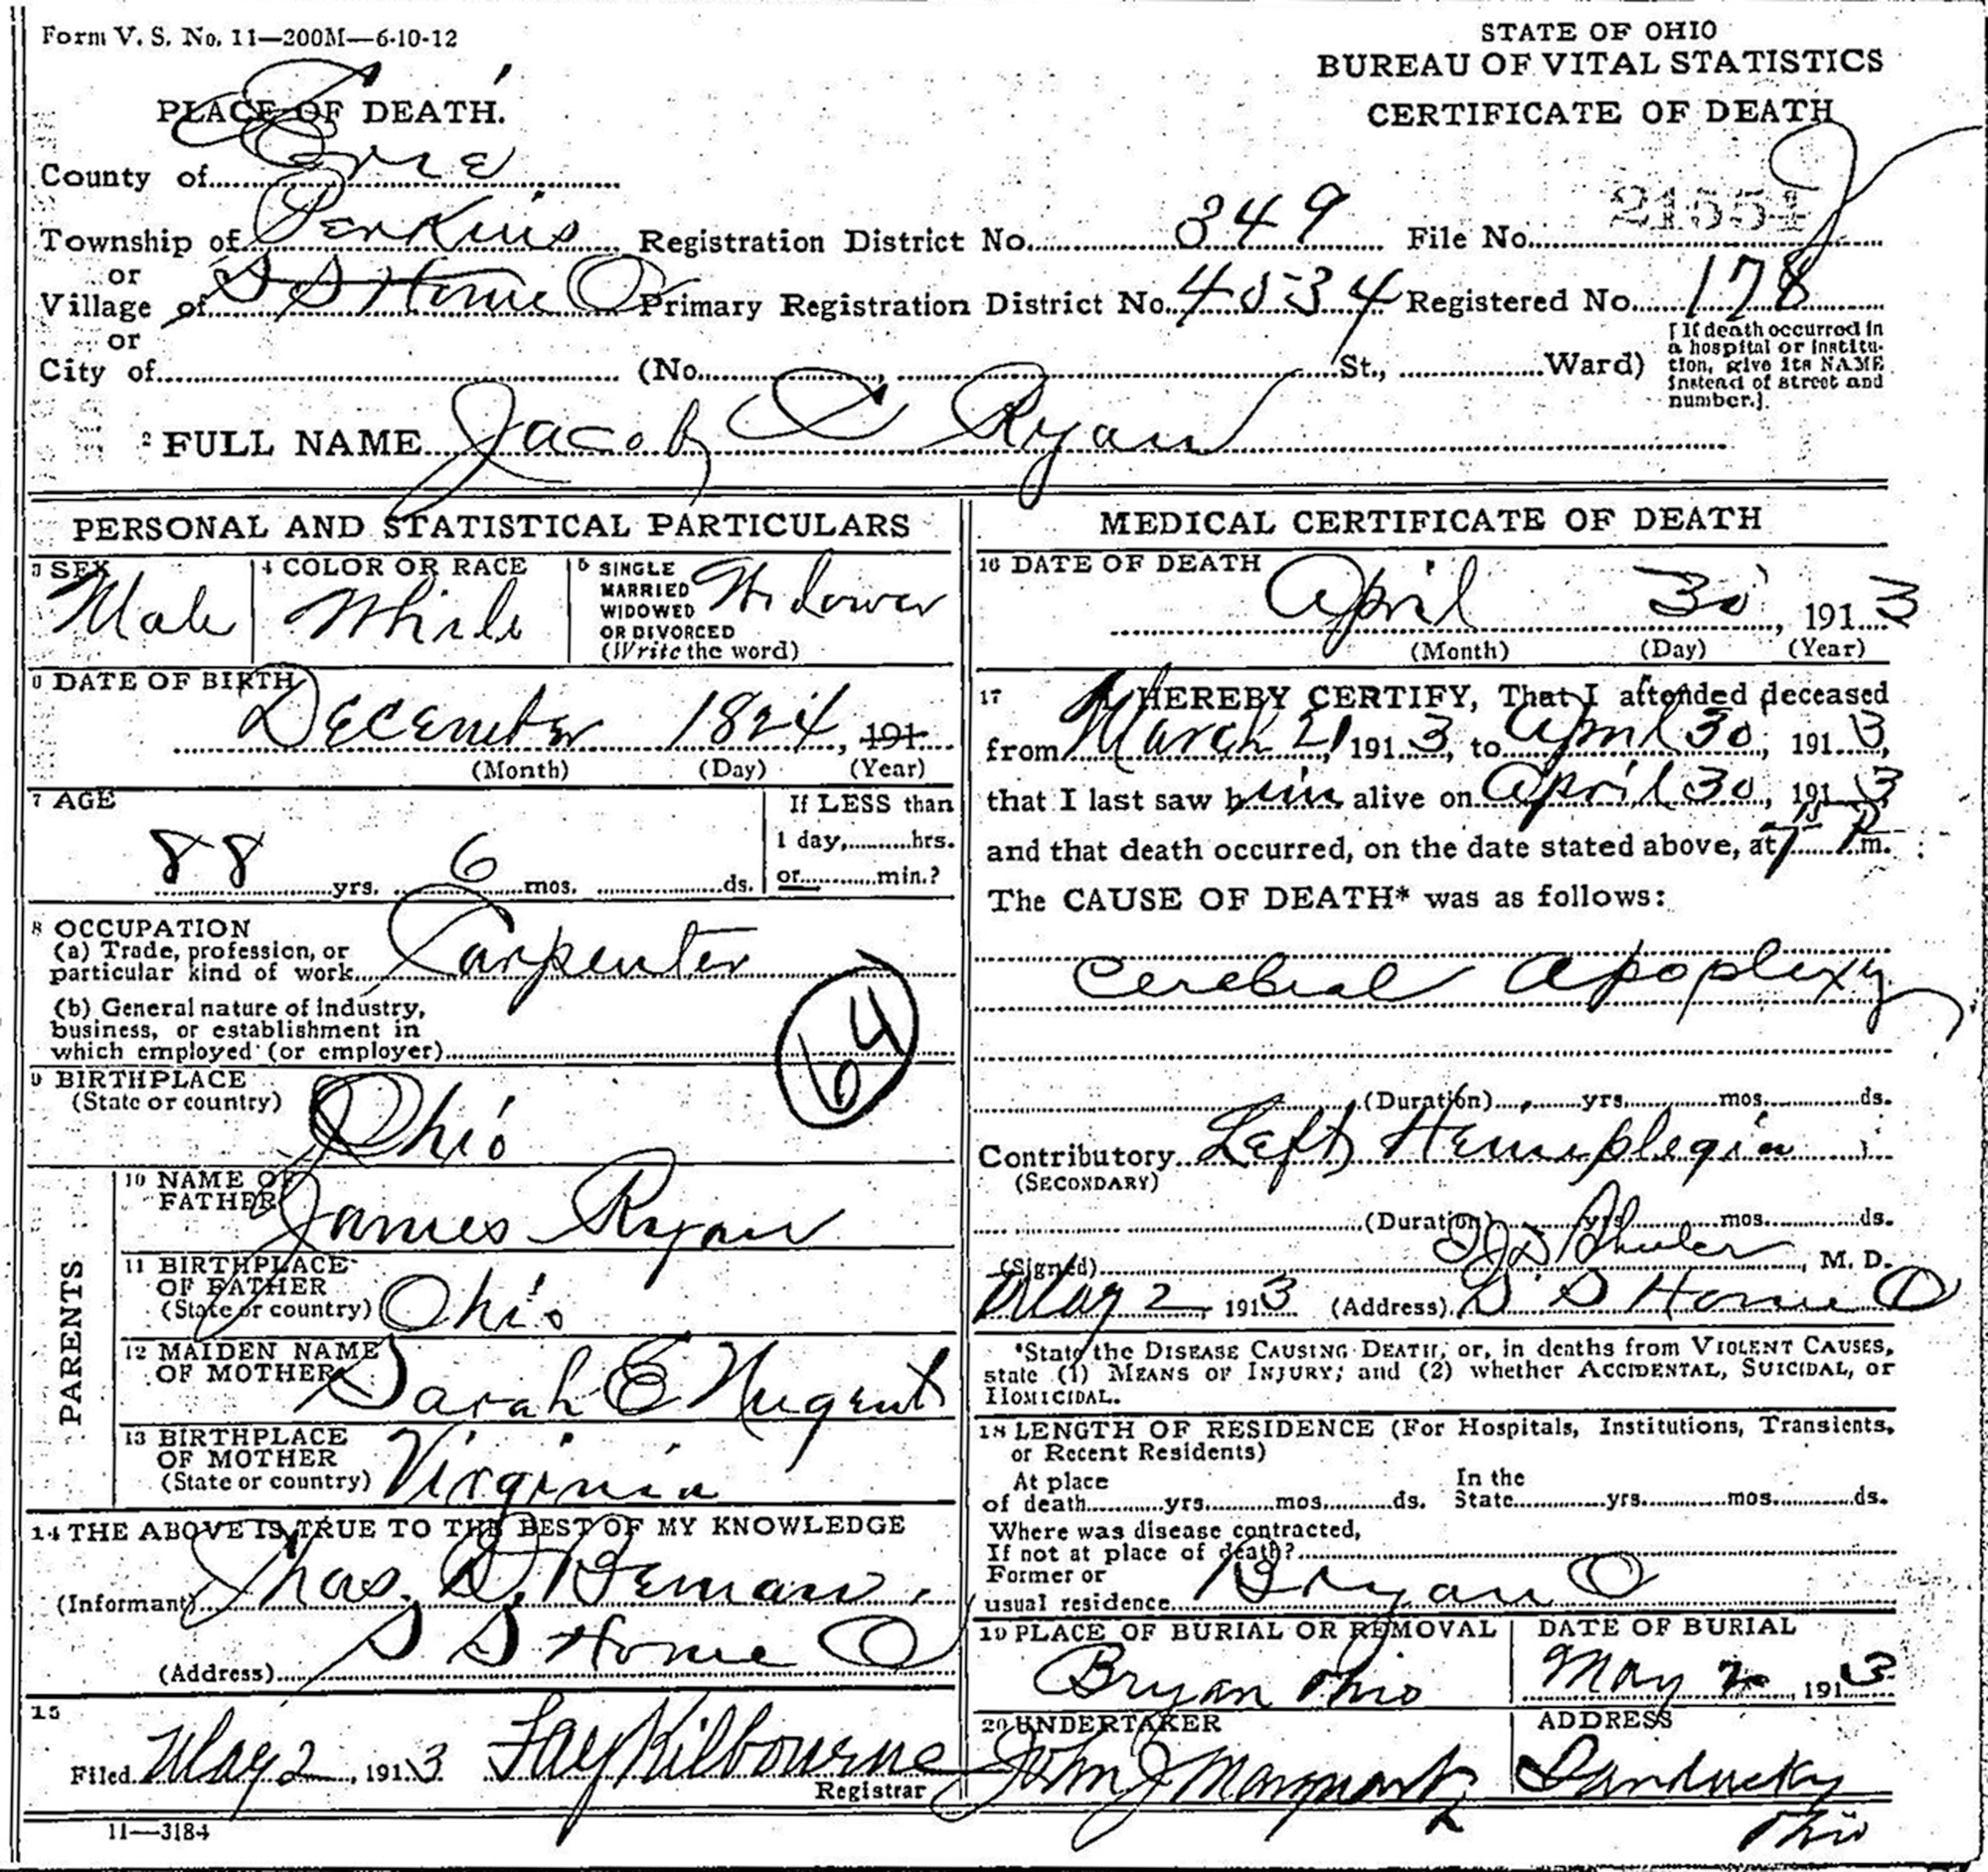 Form V. S. No. 11—200M—6-10-12
STATE OF OHIO
BUREAU OF VITAL STATISTICS
CERTIFICATE OF DEATH
PLACE OF DEATH.
County of Erie
Township of Perkins Registration District No. 349 File No. 21554
or
Village of S S Home O Primary Registration District No. 4534 Registered No. 178
or
City of (No. , St., Ward)
[If death occurred in
a hospital or institu-
tion, give its NAME
instead of street and
number.]
2 FULL NAME Jacob C Ryan
PERSONAL AND STATISTICAL PARTICULARS
3 SEX
Male
4 COLOR OR RACE
White
5 SINGLE
MARRIED
WIDOWED
OR DIVORCED
(Write the word)
Widower
6 DATE OF BIRTH
December 1824, 191
(Month) (Day) (Year)
7 AGE
88 yrs. 6 mos. ds.
If LESS than
1 day, hrs.
or min.?
8 OCCUPATION
(a) Trade, profession, or
particular kind of work Carpenter
(b) General nature of industry,
business, or establishment in
which employed (or employer)
64
9 BIRTHPLACE
(State or country)
Ohio
PARENTS
10 NAME OF
FATHER
James Ryan
11 BIRTHPLACE
OF FATHER
(State or country)
Ohio
12 MAIDEN NAME
OF MOTHER
Sarah E Nugent
13 BIRTHPLACE
OF MOTHER
(State or country)
Virginia
14 THE ABOVE IS TRUE TO THE BEST OF MY KNOWLEDGE
(Informant) D. Beman
(Address) S S Home O
15
Filed May 2, 1913 Fay Kilbourne
Registrar
11—3184
MEDICAL CERTIFICATE OF DEATH
16 DATE OF DEATH
April 30, 1913
(Month) (Day) (Year)
17 I HEREBY CERTIFY, That I attended deceased
from March 21 1913, to April 30, 1913,
that I last saw him alive on April 30, 1913
and that death occurred, on the date stated above, at 7 P m.
The CAUSE OF DEATH* was as follows:
Cerebral Apoplexy
(Duration) yrs. mos. ds.
Contributory Left Hemiplegia
(SECONDARY)
(Duration) yrs. mos. ds.
(Signed) M. D.
May 2, 1913 (Address) S S Home O
*State the DISEASE CAUSING DEATH, or, in deaths from VIOLENT CAUSES,
state (1) MEANS OF INJURY; and (2) whether ACCIDENTAL, SUICIDAL, or
HOMICIDAL.
18 LENGTH OF RESIDENCE (For Hospitals, Institutions, Transients,
or Recent Residents)
At place
of death yrs. mos. ds.
In the
State yrs. mos. ds.
Where was disease contracted,
If not at place of death?
Former or
usual residence Bryan O
19 PLACE OF BURIAL OR REMOVAL
Bryan Ohio
DATE OF BURIAL
May 2, 1913
20 UNDERTAKER
John J Marquart
ADDRESS
Sandusky
Ohio